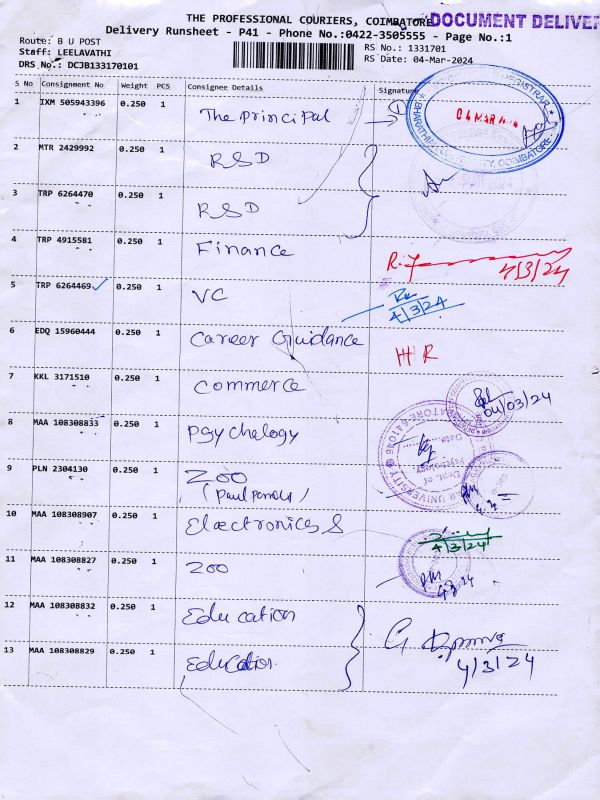 THE PROFESSIONAL COURIERS, COIMBATORE DOCUMENT DELIVER
Delivery Runsheet - P41 - Phone No.:0422-3505555 - Page No.:1
Route: B U POST
Staff: LEELAVATHI
DRS No.: DCJB133170101
RS No.: 1331701
RS Date: 04-Mar-2024
S No Consignment No Weight PCS Consignee Details Signature
1 IXM 505943396 0.250 1 The Principal 1
04 MAR
2 MTR 2429992 0.250 1 RSD
3 TRP 6264470 0.250 1 RSD
4 TRP 4915581 0.250 1 Finance 4/3/24
5 TRP 6264469 0.250 1 VC 4/3/24
6 EDQ 15960444 0.250 1 Career Guidance HR
7 KKL 3171510 0.250 1 Commerce 04/03/24
8 MAA 108308833 0.250 1 Psychology
Dept. of Psychology
Date
9 PLN 2304130 0.250 1 Zoo
10 MAA 108308907 0.250 1 Electronics S 4/3/24
11 MAA 108308827 0.250 1 Zoo
12 MAA 108308832 0.250 1 Education
13 MAA 108308829 0.250 1 Education 4/3/24